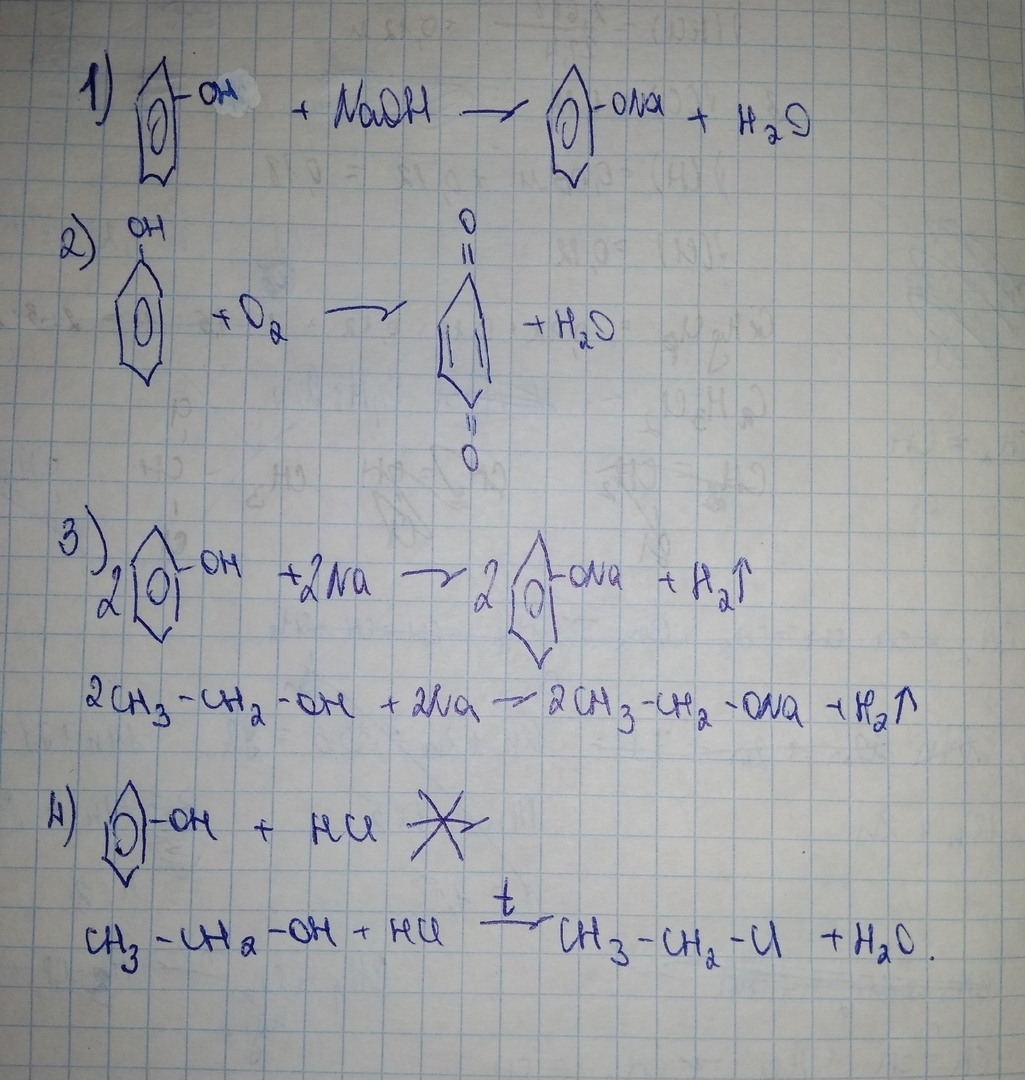 1) OH + NaOH → ONa + H₂O
2) OH + O₂ → O = = O + H₂O
3) 2 OH + 2Na → 2 ONa + H₂↑
2CH₃-CH₂-OH + 2Na → 2CH₃-CH₂-ONa + H₂↑
4) OH + HCl
CH₃-CH₂-OH + HCl t→ CH₃-CH₂-Cl + H₂O.